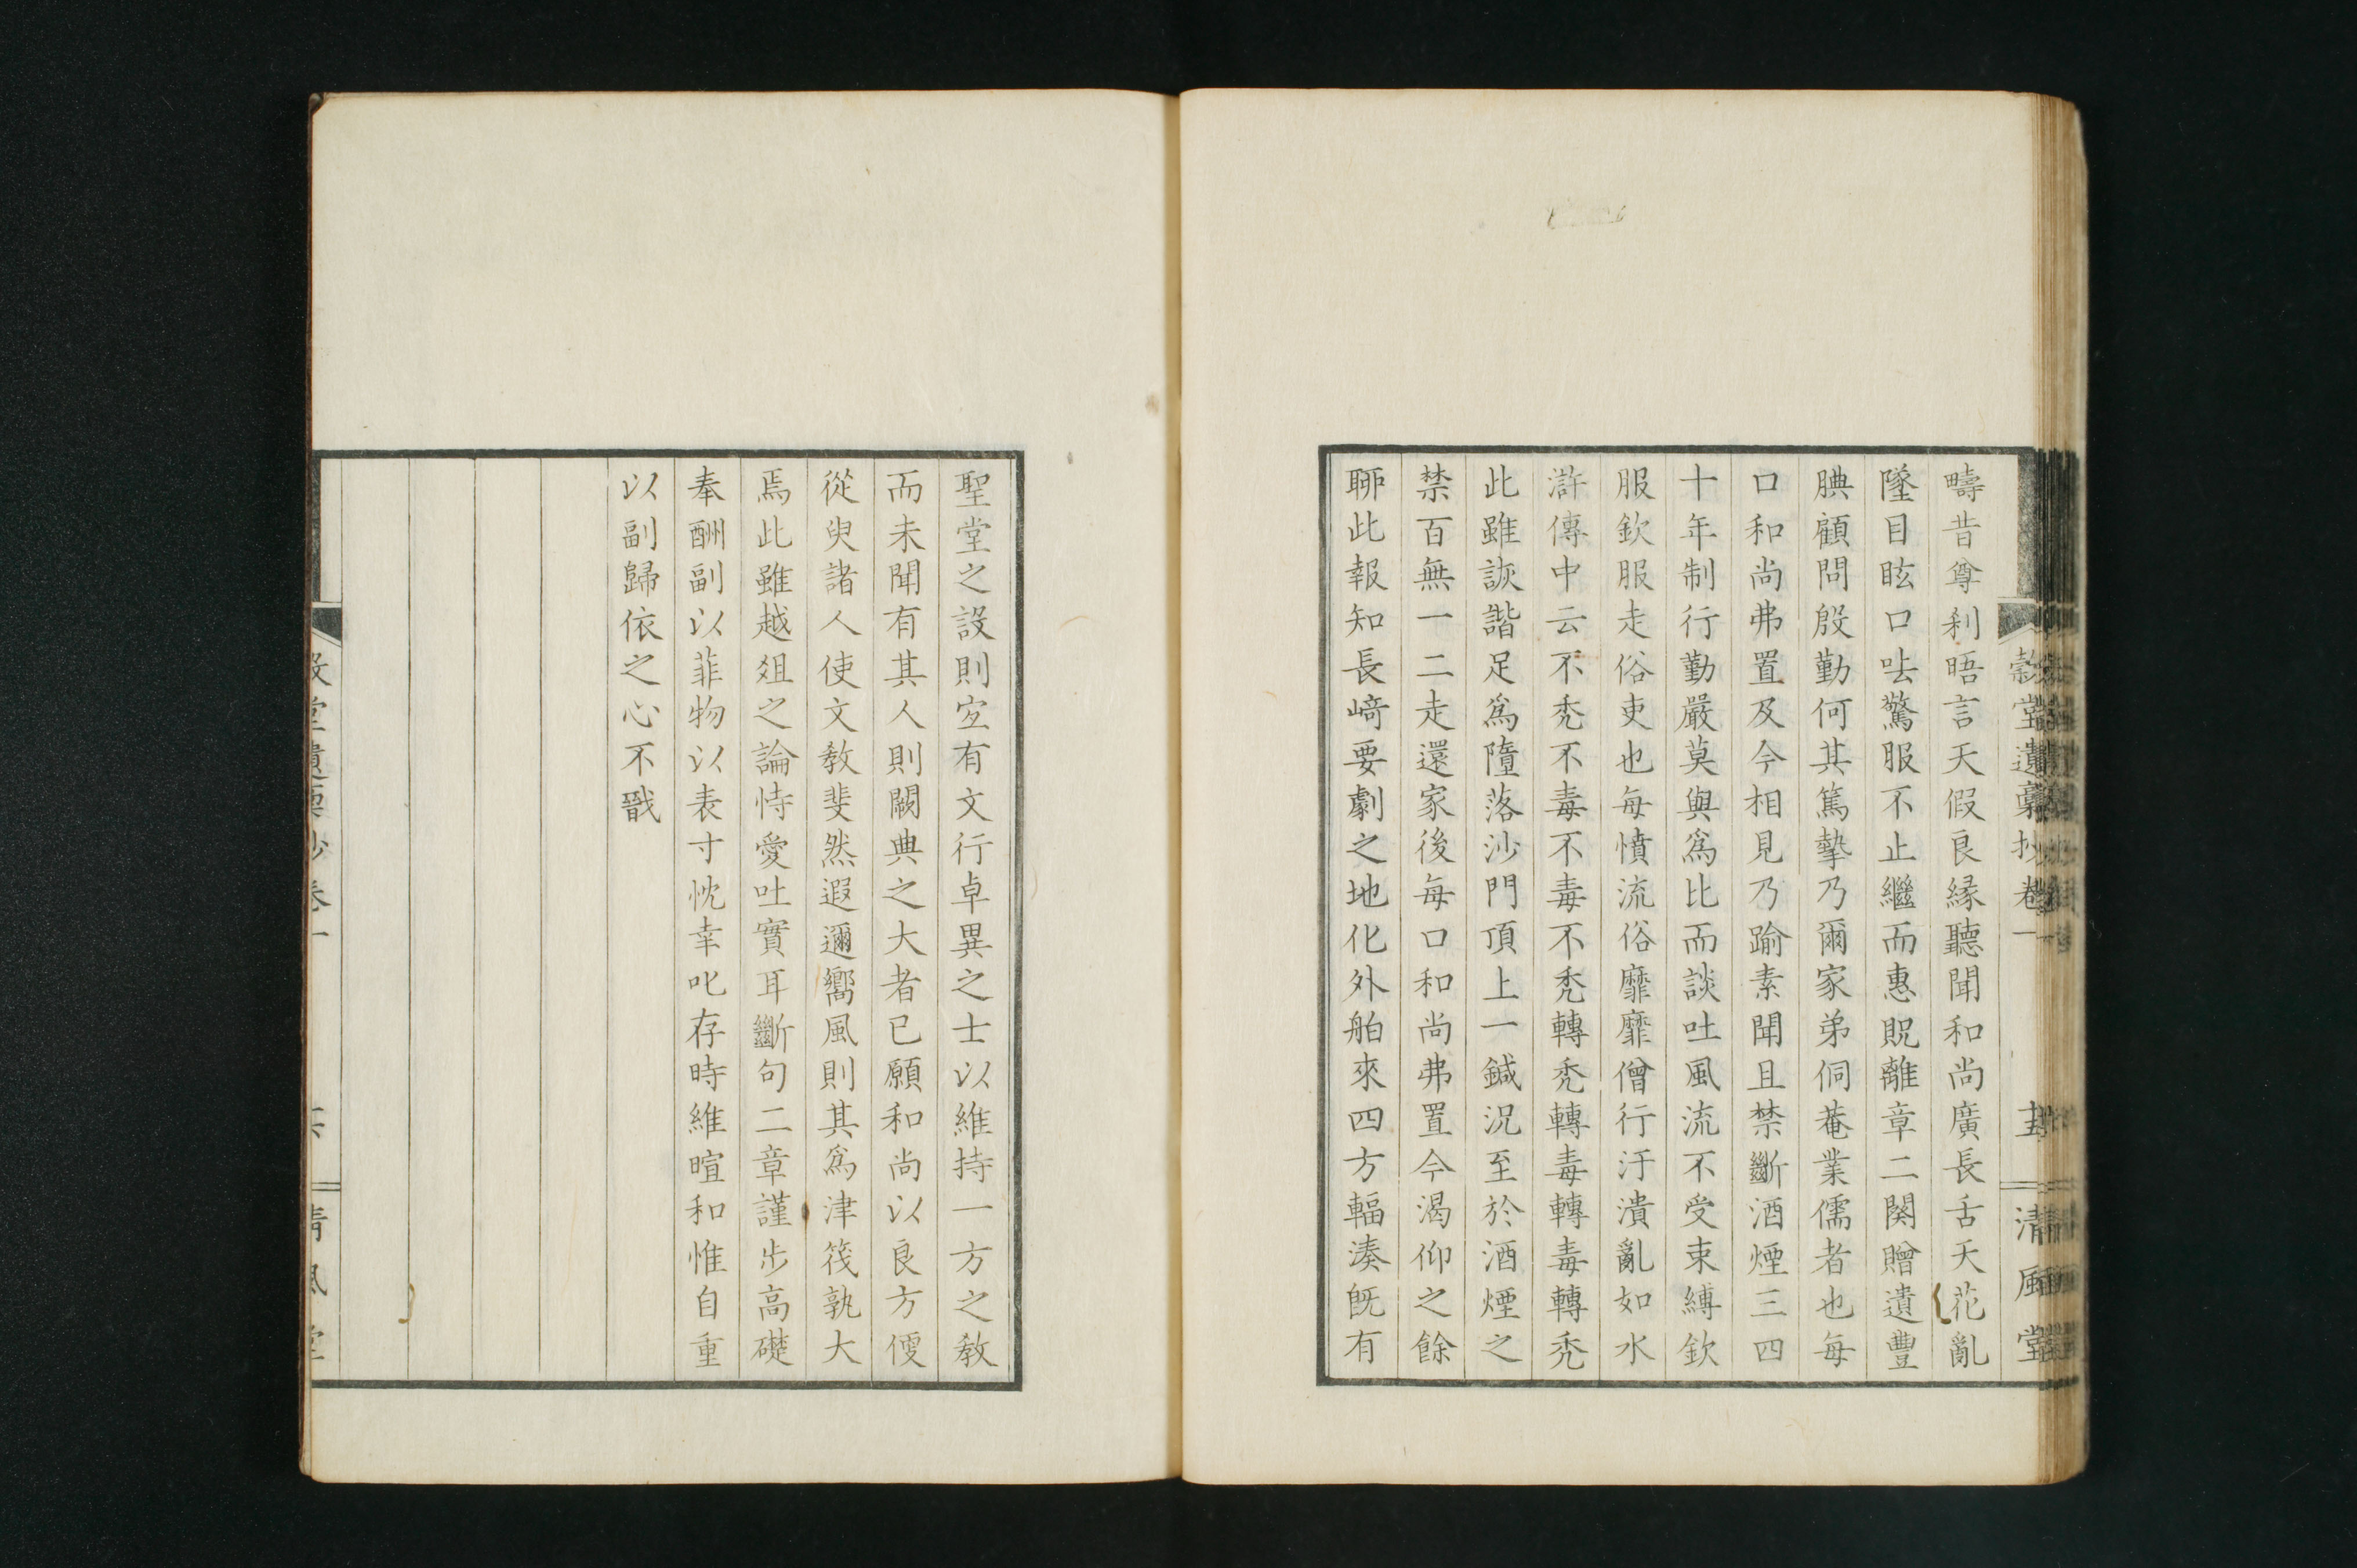 疇昔尊利晤言天假良緣聽聞和尚廣長舌天花亂
墜目眩口呿驚服不止繼而惠貺離章二闋贈遺豐
腆顧問殷勤何其篤摯乃爾家弟侗菴業儒者也每
口和尚弗置及今相見乃踰素聞且禁斷酒煙三四
十年制行勤嚴莫與爲比而談吐風流不受束縛欽
服欽服走俗吏也每憤流俗靡靡僧行汙潰亂如水
滸傳中云不禿不毒不毒不禿轉禿轉毒轉毒轉禿
此雖詼諧足爲墮落沙門頂上一鍼況至於酒煙之
禁百無一二走還家後每口和尚弗置今渴仰之餘
聊此報知長崎要劇之地化外舶來四方輻湊旣有
穀堂遺稾抄卷一
清風堂
聖堂之設則宜有文行卓異之士以維持一方之教
而未聞有其人則闕典之大者已願和尚以良方便
從臾諸人使文教斐然遐邇嚮風則其爲津筏孰大
焉此雖越俎之論恃愛吐實耳斷句二章謹步高礎
奉酬副以菲物以表寸忱幸叱存時維暄和惟自重
以副歸依之心不戩